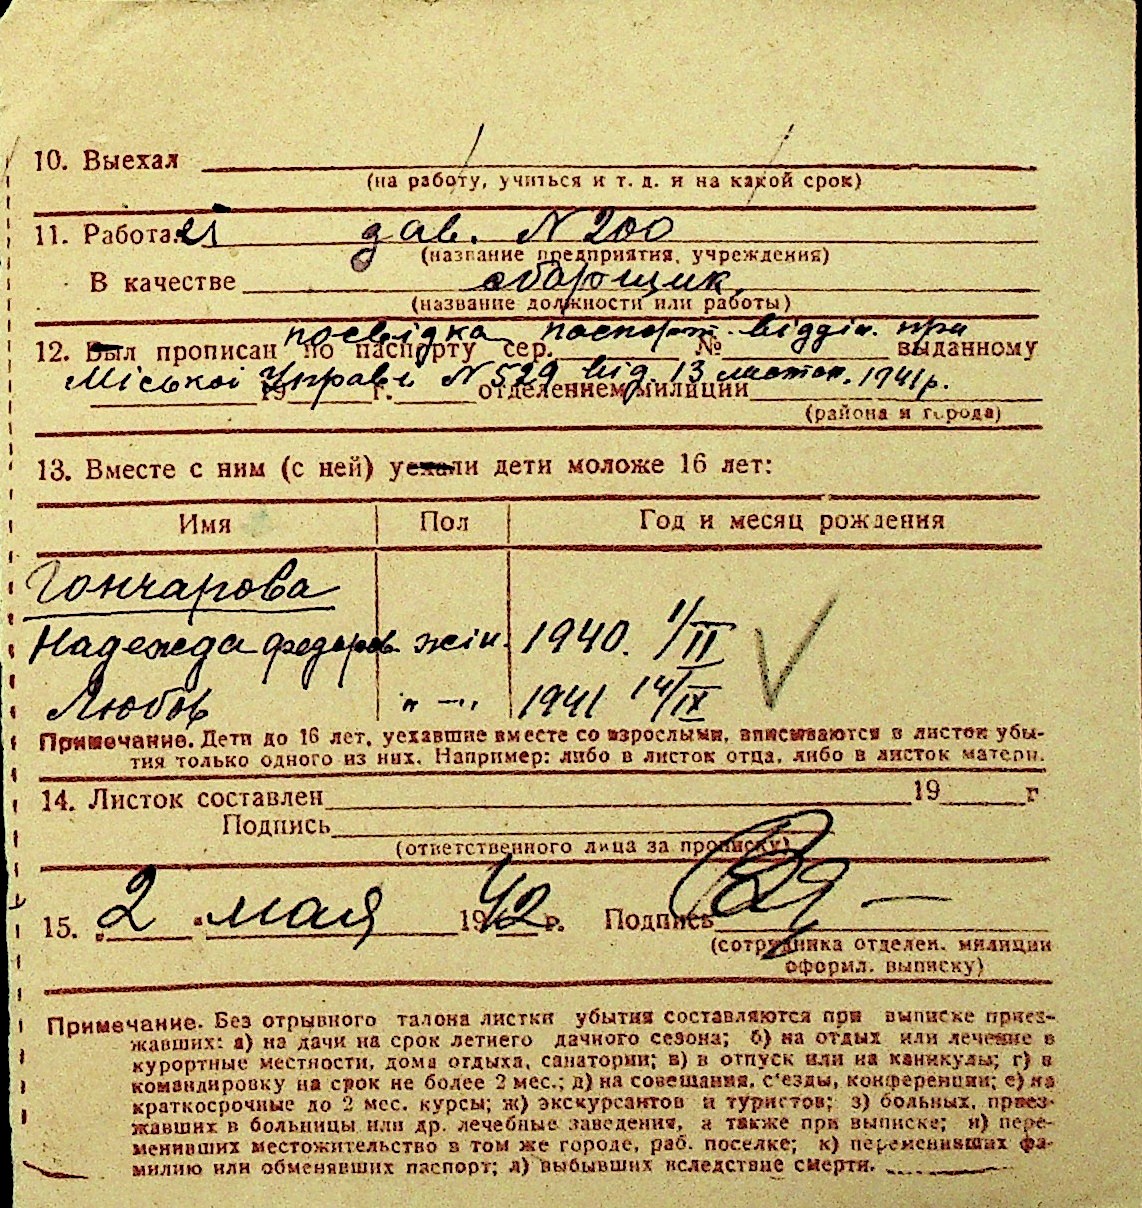 10. Выехал
(на работу, учиться и т. д. и на какой срок)
11. Работал зав. N 200
(название предприятия, учреждения)
В качестве сбарщик,
(название должности или работы)
посвідка паспорт. відділ. при
12. Был прописан по паспорту сер. № выданному
Міській Управі N 529 від. 13 листоп. 1941 р.
19 г. отделением милиции
(района и города)
13. Вместе с ним (с ней) уехали дети моложе 16 лет:
Имя Пол Год и месяц рождения
Гончарова
Надежда федоров. жін. 1940. 1/II
Любов " —" 1941 14/IX
Примечание. Дети до 16 лет, уехавшие вместе со взрослыми, вписываются в листок убы-
тия только одного из них. Например: либо в листок отца, либо в листок матери.
14. Листок составлен 19 г
Подпись
(ответственного лица за прописку)
15. „2 " мая 1942 г. Подпись
(сотрудника отделен. милиции
оформл. выписку)
Примечание. Без отрывного талона листки убытия составляются при выписке приез-
жавших: а) на дачи на срок летнего дачного сезона; б) на отдых или лечение в
курортные местности, дома отдыха, санатории; в) в отпуск или на каникулы; г) в
командировку на срок не более 2 мес.; д) на совещания, с'езды, конференции; е) на
краткосрочные до 2 мес. курсы; ж) экскурсантов и туристов; з) больных, приез-
жавших в больницы или др. лечебные заведения, а также при выписке; и) пере-
менивших местожительство в том же городе, раб. поселке; к) переменивших фа-
милию или обменявших паспорт; л) выбывших вследствие смерти.